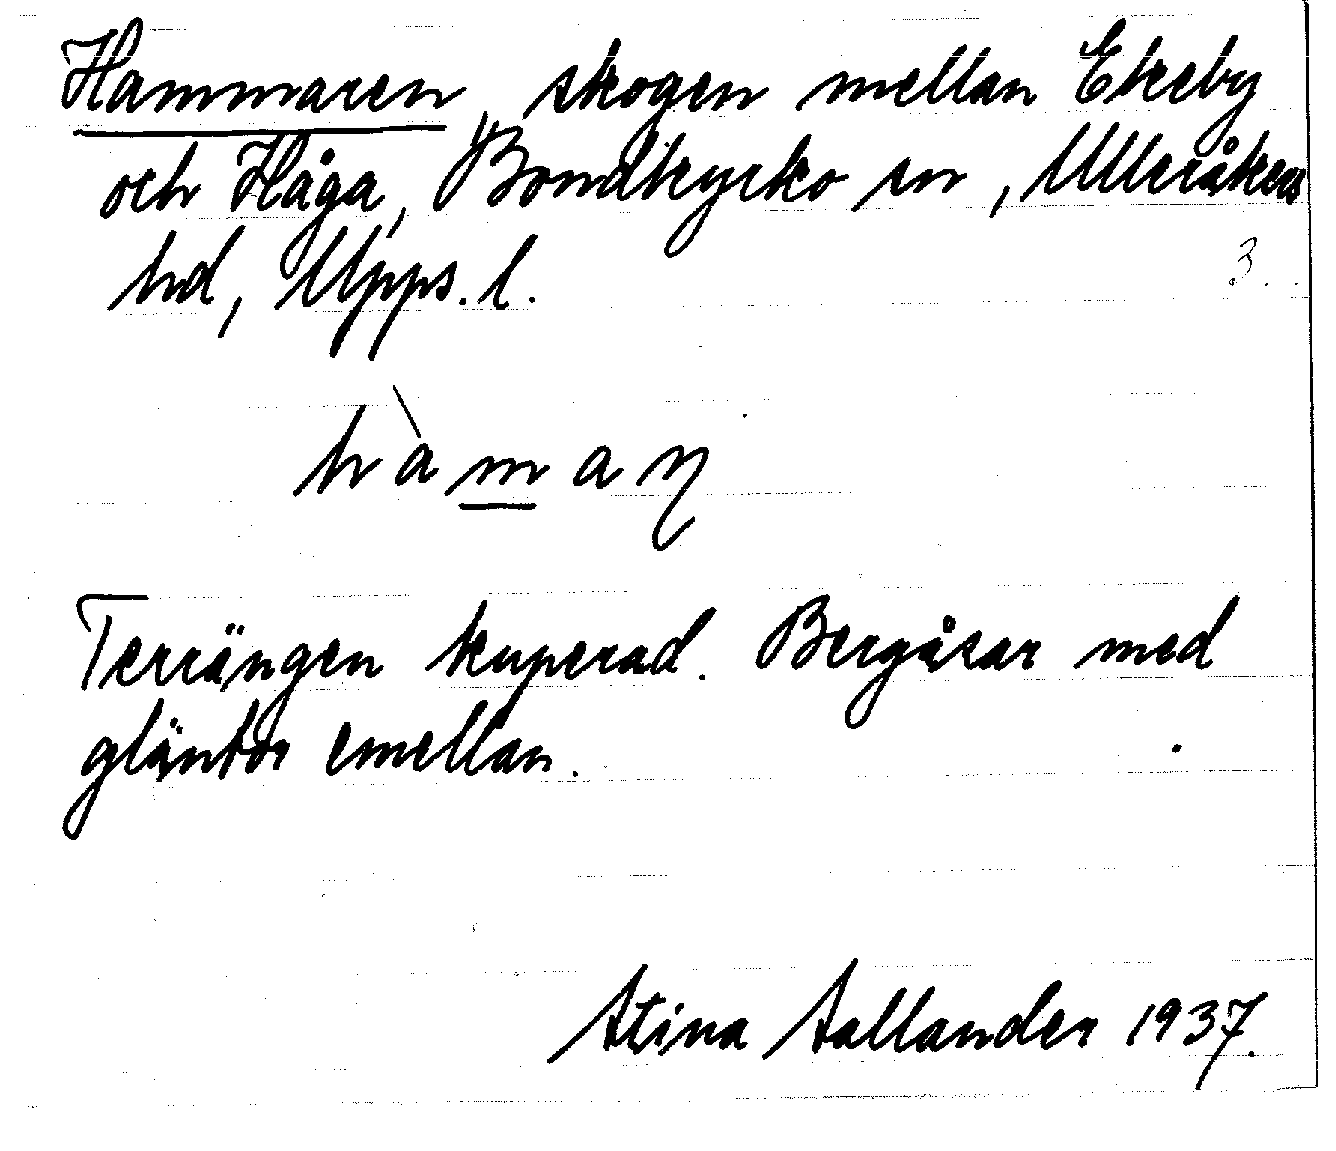 Hammaren, skogen mellan Ekeby
och Håga, Bondkyrko sn, Ulleråkers
hd, Upps. l.
3.
hàmaɳ
Terrängen kuperad. Bergåsar med
gläntor emellan.
Stina Sallander 1937.